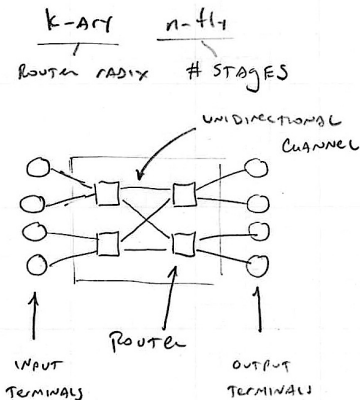 k-ARY n-fly
ROUTER RADIX # STAGES
UNIDIRECTIONAL
CHANNEL
ROUTER
INPUT
TERMINALS
OUTPUT
TERMINALS